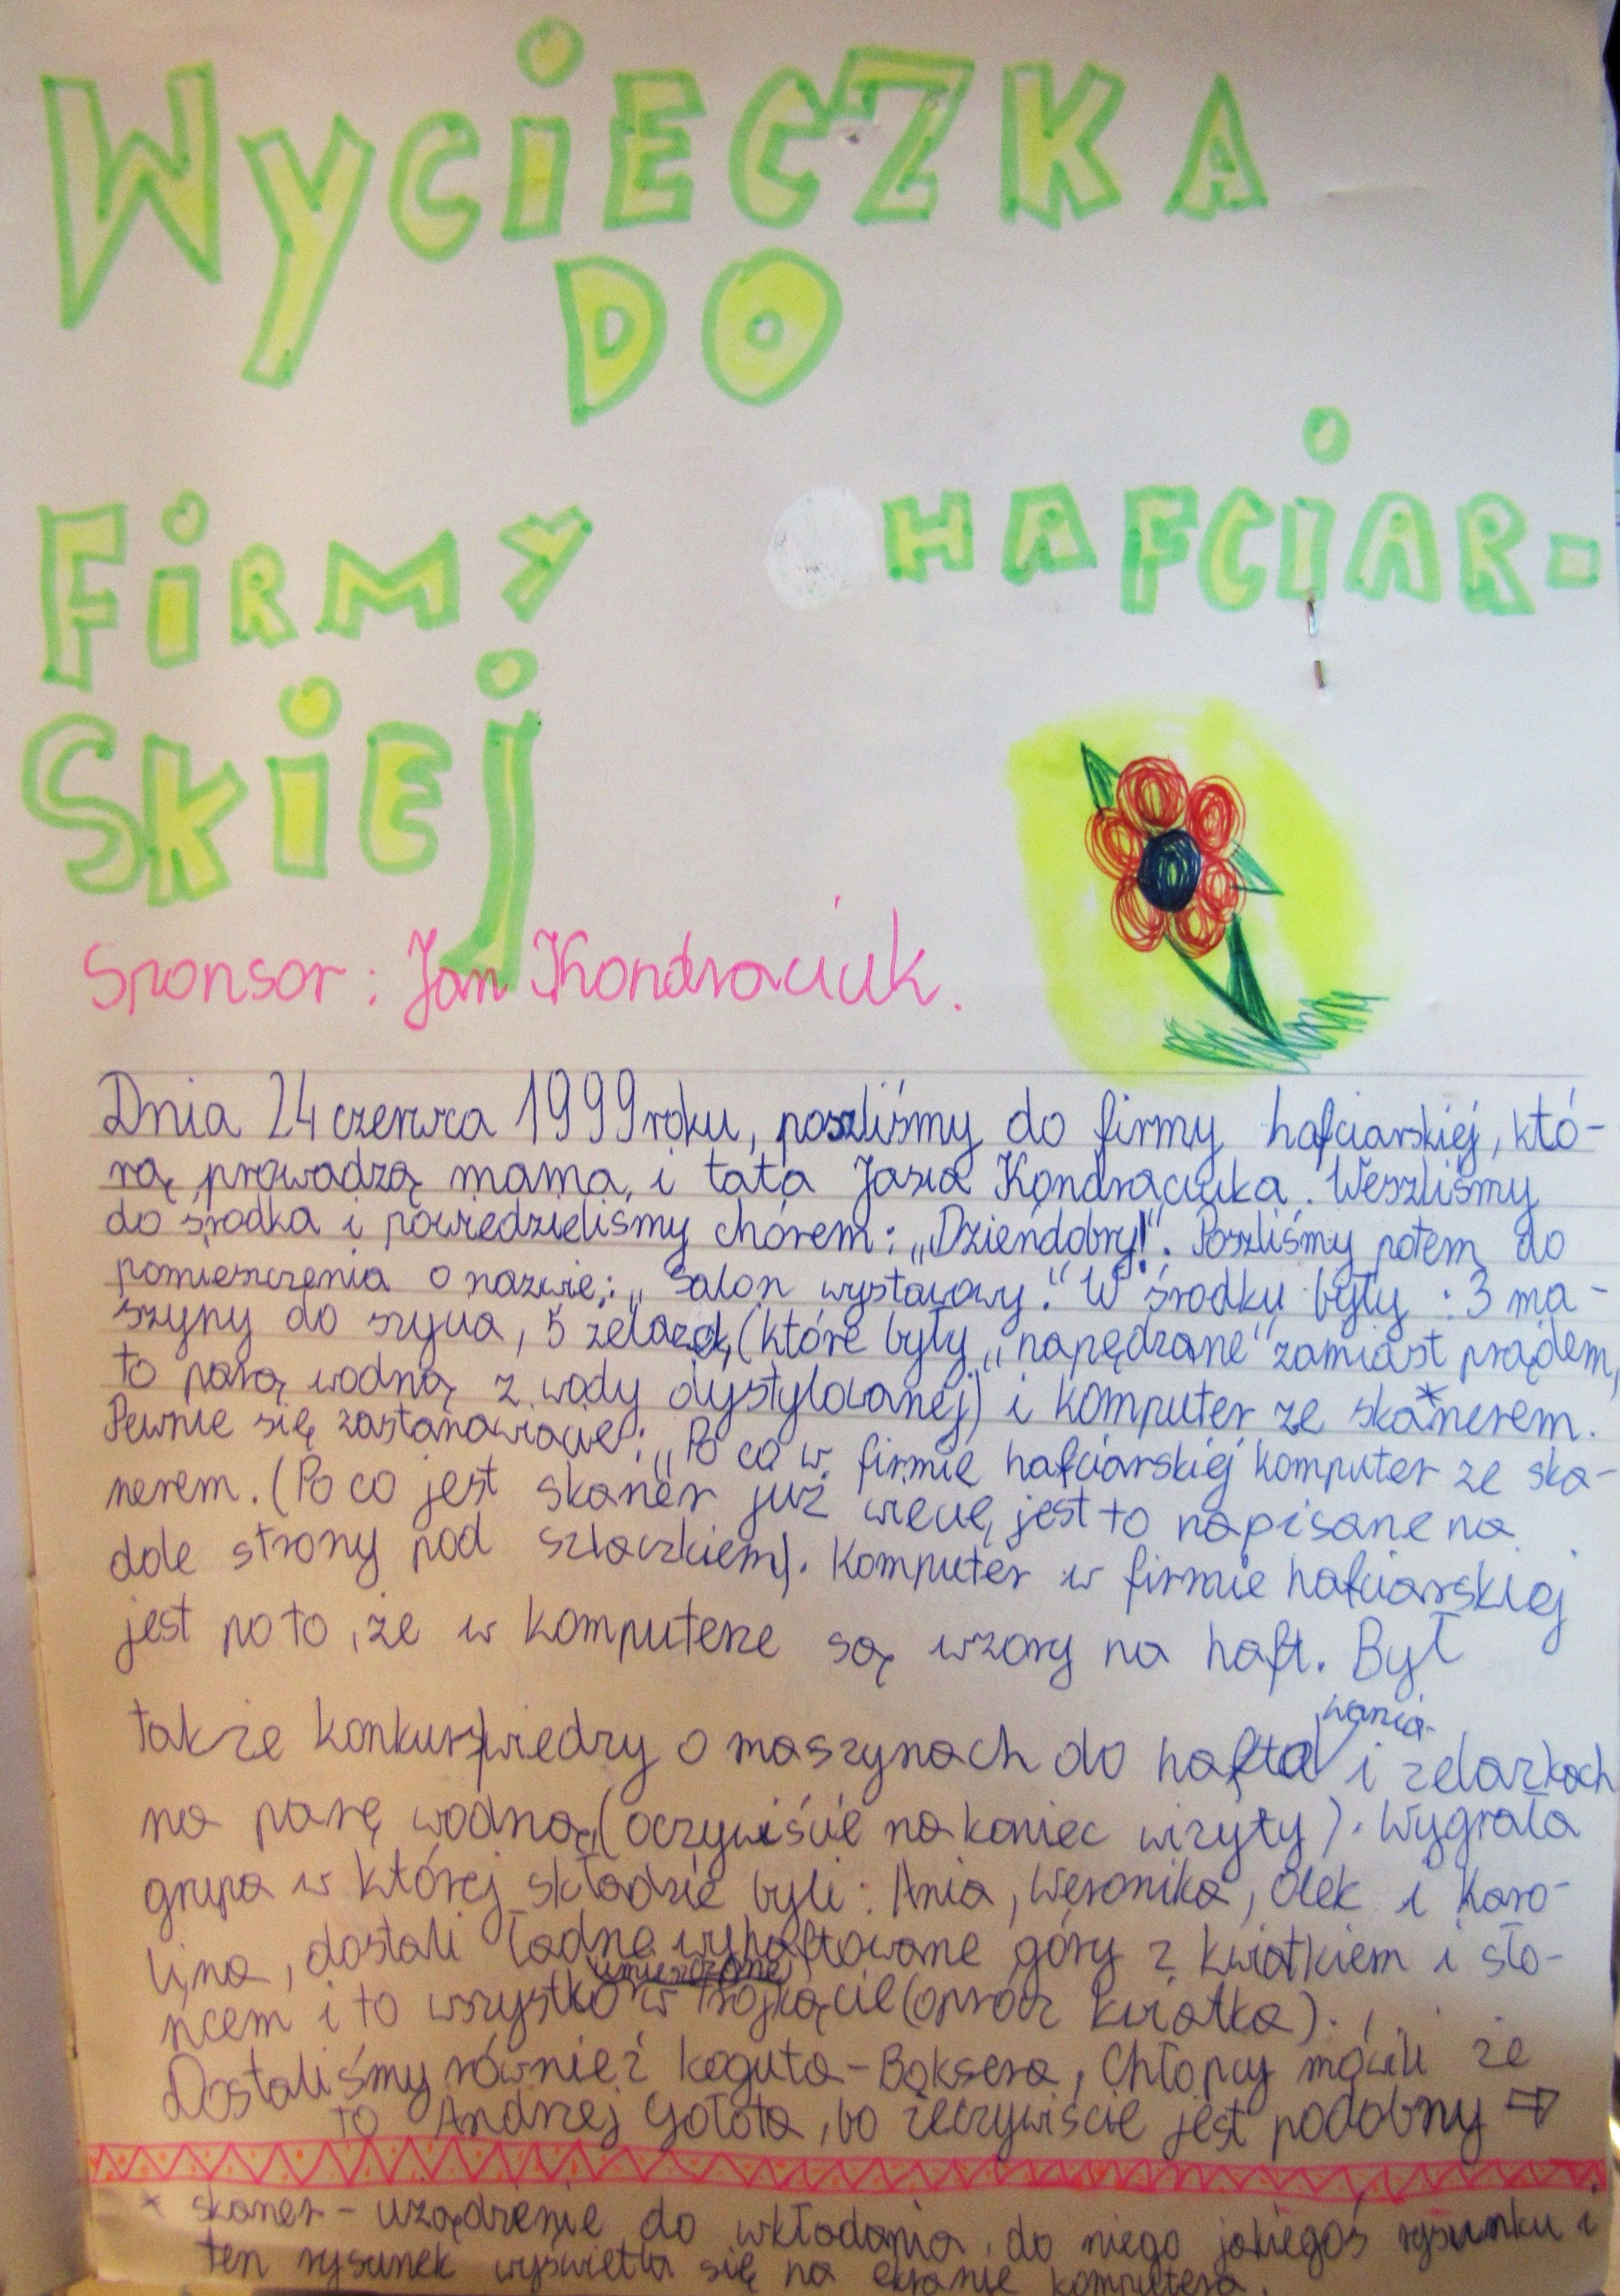 WYCIECZKA
DO
FIRMY HAFCIAR-
SKIEJ
Sponsor: Jan Kondraciuk.
Dnia 24 czerwca 1999 roku, poszliśmy do firmy hafciarskiej, któ-
rą prowadzą mama, i tata Jasia Kondraciuka. Weszliśmy
do środka i powiedzieliśmy chórem: „Dzieńdobry!". Poszliśmy potem do
pomieszczenia o nazwie: „Salon wystawowy." W środku były: 3 ma-
szyny do szycia, 5 żelazek, (które były „napędzane" zamiast prądem,
to parą wodną z wody dystylowanej) i komputer ze ska*nerem.
Pewnie się zastanawiacie: „Po co w firmie hafciarskiej komputer ze ska-
nerem. (Po co jest skaner już wiecie, jest to napisane na
dole strony pod szlaczkiem). Komputer w firmie hafciarskiej
jest po to, że w komputerze są wzory na haft. Był
także konkurs wiedzy o maszynach do haftowania i żelazkach
na parę wodną, (oczywiście na koniec wizyty). Wygrała
grupa w której składzie byli: Ania, Weronika, Olek i Karo-
lina, dostali ładne wyhaftowane góry z kwiatkiem i sło-
ńcem i to wszystko w trójkącie (oprócz kwiatka).
Dostaliśmy również koguta-Boksera, Chłopcy mówili że
to Andrzej Gołota, bo rzeczywiście jest podobny ⇨
* skaner - urządzenie do wkładania, do niego jakiegoś rysunku i
ten rysunek wyświetla się na ekranie komputera.